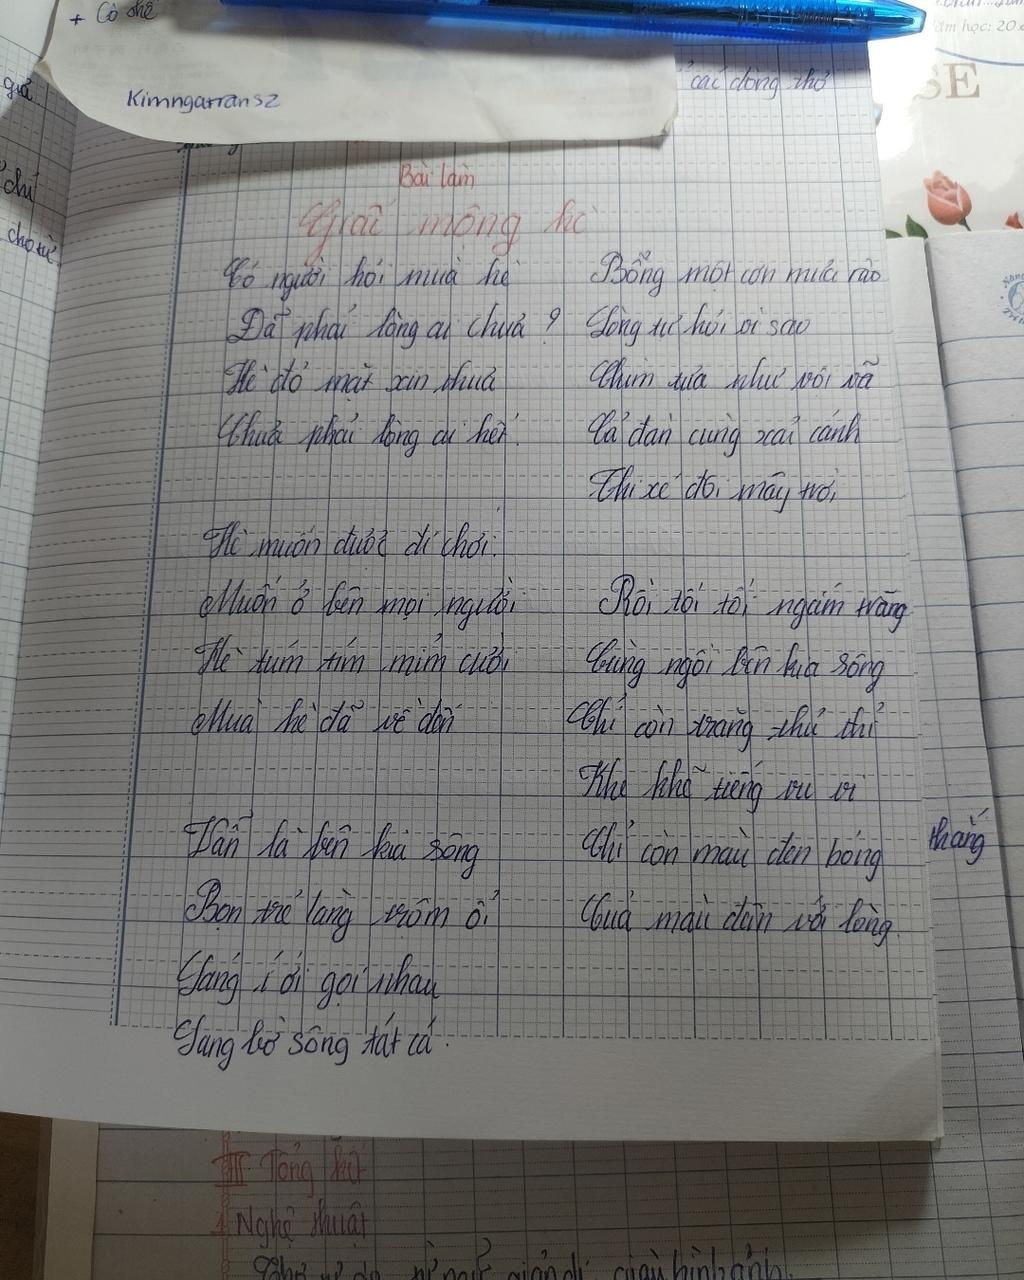 + Cò thể
Kimngatransz
các dòng thơ
học: 20.
SE
giả
chí
cho từ
Bài làm
Giấc mộng hè
Có người hỏi mùa hè
Đã phải lòng ai chưa?
Hè đỏ mặt xin thưa
Chưa phải lòng ai hết.
Hè muốn được đi chơi.
Muốn ở bên mọi người
Hè tủm tỉm mỉm cười
Mùa hè đã về đến
Vẫn là bên kia sông
Bọn trẻ làng trộm ổi
Sang í ới gọi nhau
Sang bờ sông tất cả.
Bỗng một cơn mưa rào
Sông tự hỏi vì sao
Chim tựa như vội vã
Cả đàn cùng xải cánh
Thi xẻ đôi mây trời
Rồi tối tối ngắm trăng
Cùng ngồi bên kia sông
Chỉ còn trăng thủ thỉ
Khe khẽ tiếng vu vi
Chỉ còn màu đen bóng
Của màu đêm với lòng.
thắng
III Tổng kết
1 Nghệ thuật
giản dị, giàu hình ảnh.